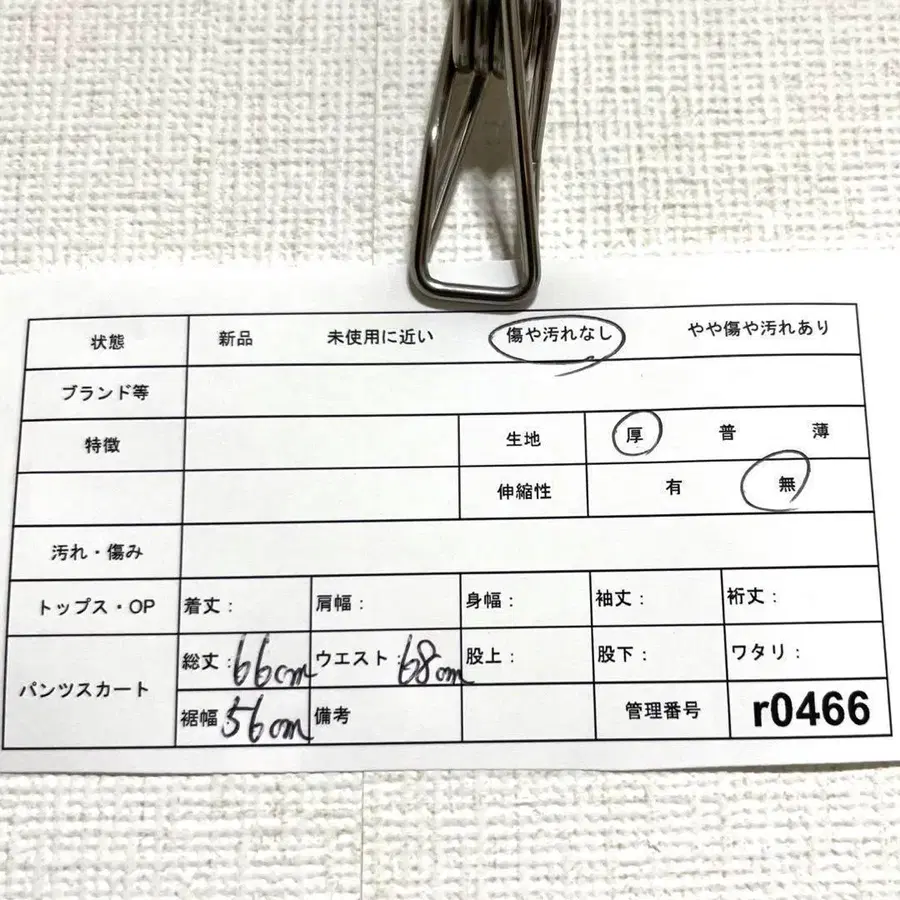 状態 新品 未使用に近い 傷や汚れなし やや傷や汚れあり
ブランド等
特徴 生地 厚 普 薄
伸縮性 有 無
汚れ・傷み
トップス・OP 着丈: 肩幅: 身幅: 袖丈: 裄丈:
パンツスカート 総丈:66cm ウエスト:68cm 股上: 股下: ワタリ:
裾幅 56cm 備考 管理番号 r0466